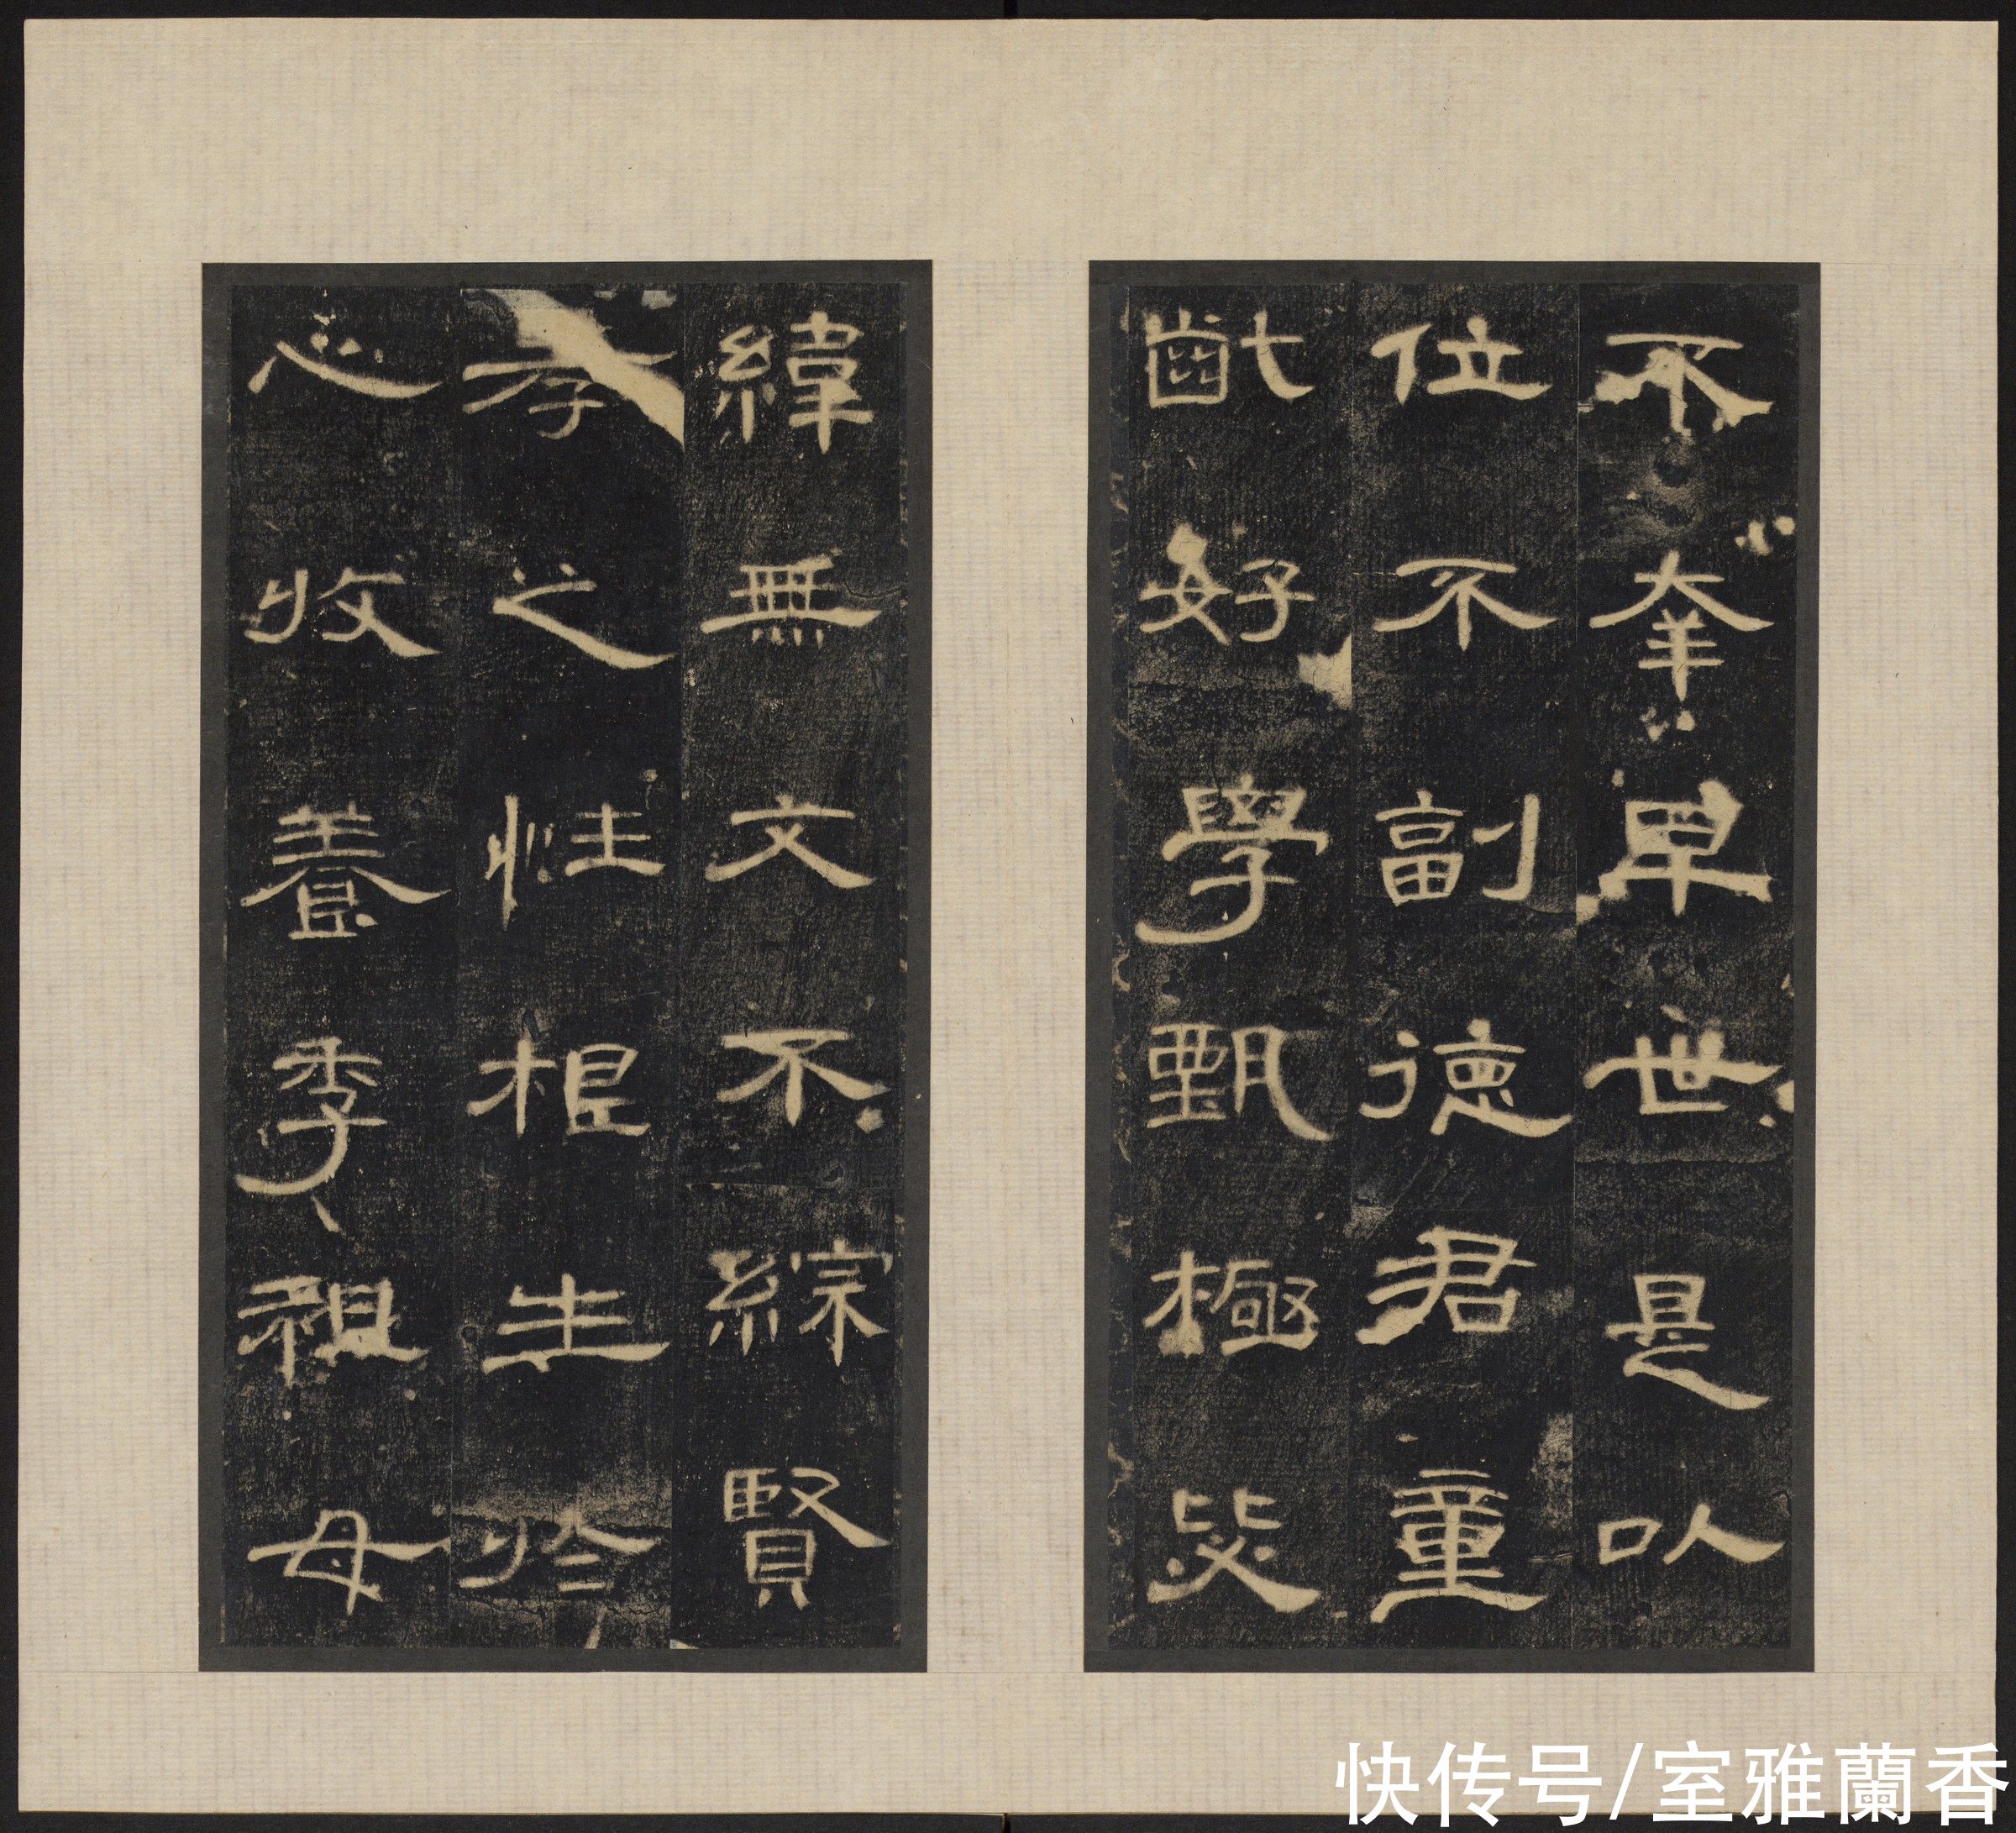 不夆早世是以
位不副德君童
齔好學甄極毖
緯無文不綜賢
孝之性根生於
心收養季祖母
快传号/室雅蘭香